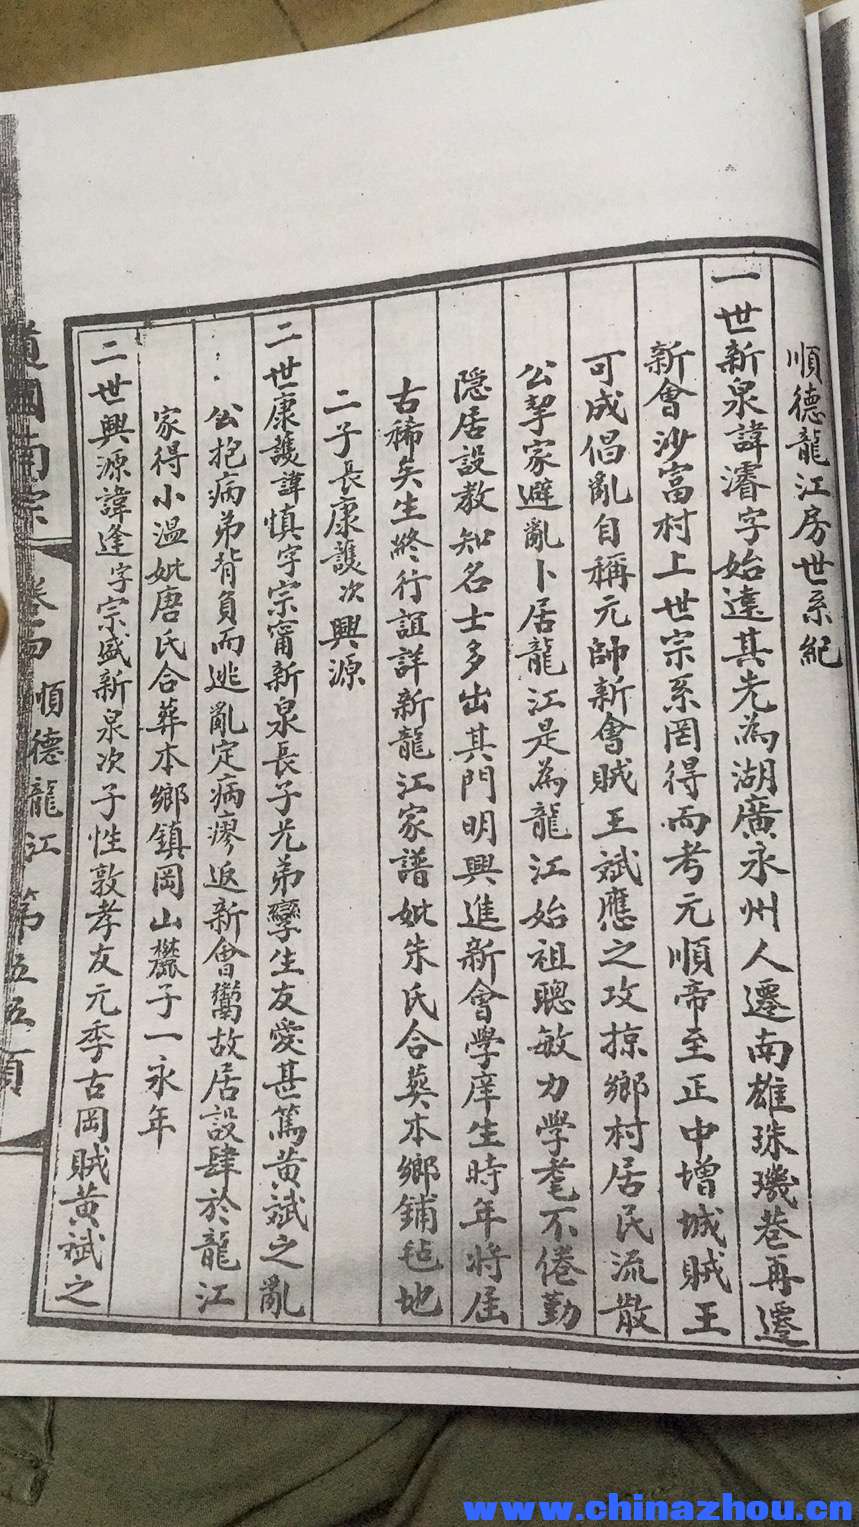 順德龍江房世系紀
一世新泉諱濬字始遠其先為湖廣永州人遷南雄珠璣巷再遷
新會沙富村上世宗系罔得而考元順帝至正中增城賊王
可成倡亂自稱元帥新會賊王斌應之攻掠鄉村居民流散
公挈家避亂卜居龍江是為龍江始祖聰敏力學耄不倦勤
隱居設教知名士多出其門明興進新會學庠生時年將屆
古稀矣生終行誼詳新龍江家譜妣朱氏合葬本鄉鋪毡地
二子長康護次興源
二世康護諱慎字宗甯新泉長子兄弟孿生友愛甚篤黃斌之亂
公抱病弟背負而逃亂定病瘳返新會鬻故居設肆於龍江
家得小溫妣唐氏合葬本鄉鎮岡山麓子一永年
二世興源諱逢字宗盛新泉次子性敦孝友元季古岡賊黃斌之
道國南宗 卷四 順德龍江 第五五頁
www.chinazhou.cn